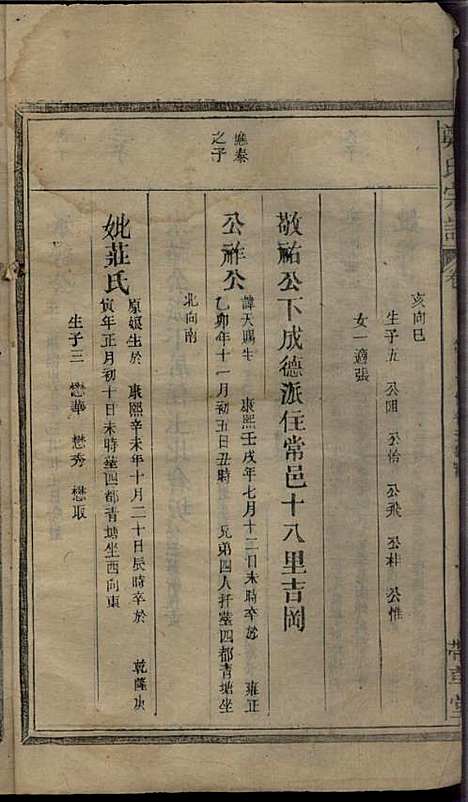 氏宗譜
亥向巳
生子五 公 公怡 公飛 公 公惟
女一適張
敬祐公下成德派住常邑十八里吉岡
之子
公祥公
諱天賜生 康熙壬戌年七月十二日未時卒於 雍正
乙卯年十一月初五日丑時 兄弟四人扦塋四都青塘坐
北向南
妣莊氏
原娘生於 康熙辛未年十月二十日辰時卒於 乾隆庚
寅年正月初十日未時塋四都青塘坐西向東
生子三 懋華 懋秀 懋取